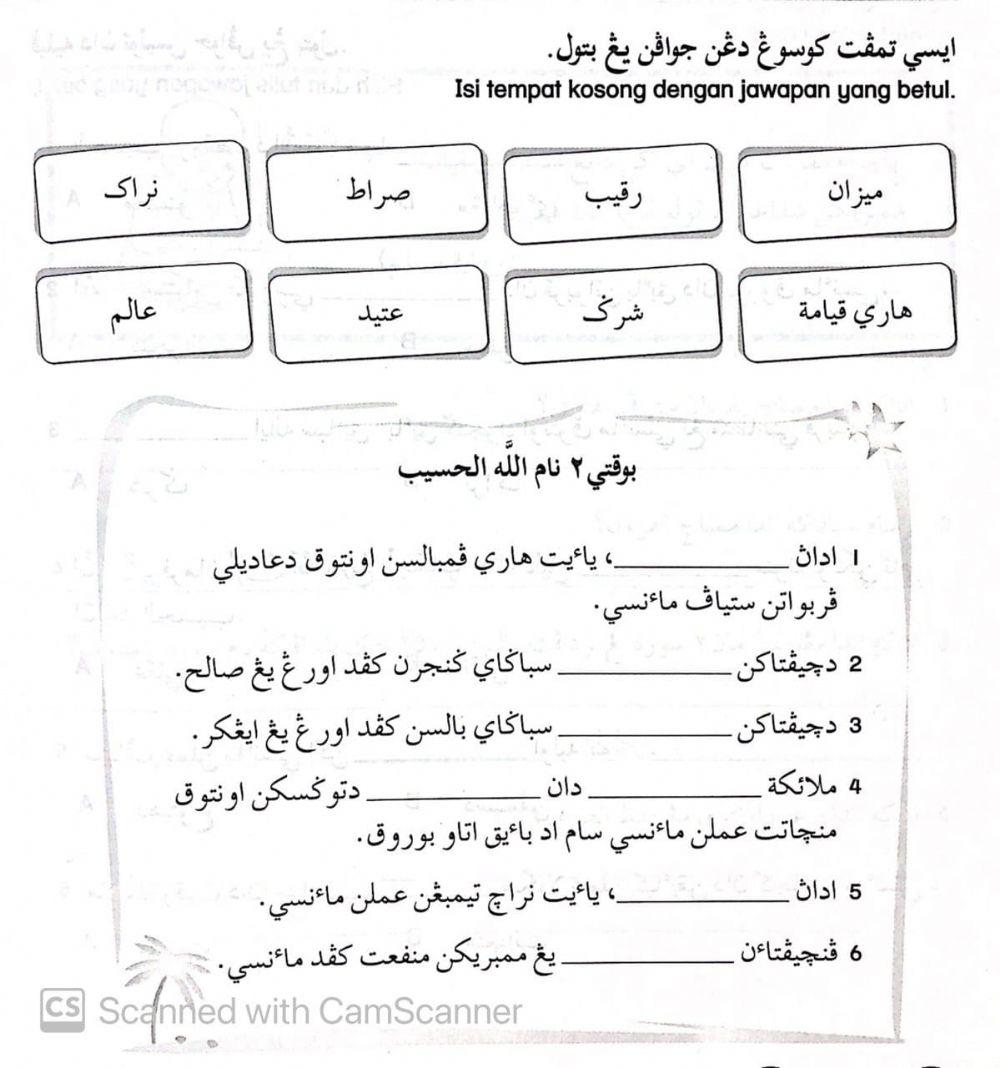 ايسي تمڤت كوسوڠ دڠن جواڤن يڠ بتول.
Isi tempat kosong dengan jawapan yang betul.
ميزان رقيب صراط نراک
هاري قيامة شرک عتيد عالم
بوقتي٢ نام اللّٰه الحسيب
1 اداڽ ____________، ياءيت هاري ڤمبالسن اونتوق دعاديلي
ڤربواتن ستياڤ ماءنسي.
2 دچيڤتاكن ____________ سباݢاي ݢنجرن كڤد اورڠ يڠ صالح.
3 دچيڤتاكن ____________ سباݢاي بالسن كڤد اورڠ يڠ ايڠكر.
4 ملائكة ____________ دان ____________ دتوݢسكن اونتوق
منچاتت عملن ماءنسي سام اد باءيق اتاو بوروق.
5 اداڽ ____________، ياءيت نراچ تيمبڠن عملن ماءنسي.
6 ڤنچيڤتاءن ____________ يڠ ممبريكن منفعت كڤد ماءنسي.
CS Scanned with CamScanner